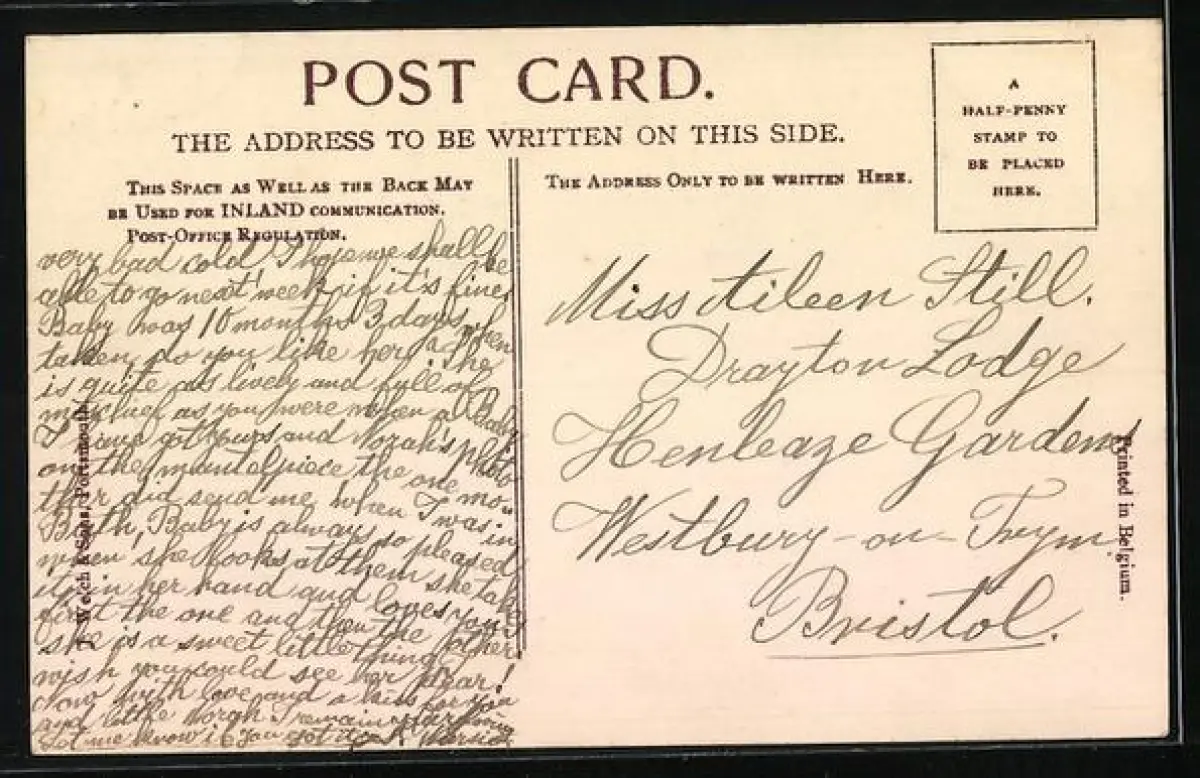 POST CARD.
THE ADDRESS TO BE WRITTEN ON THIS SIDE.
THIS SPACE AS WELL AS THE BACK MAY
BE USED FOR INLAND COMMUNICATION.
POST-OFFICE REGULATION.
very bad cold I hope we shall be
able to go next week, if it's fine,
Baby was 10 months 3 days when
taken, do you like her? She
is quite as lively and full of
mischief as you were when a Baby
I have got yours and Norah's photo
on the mantelpiece the one mo-
ther did send me when I was in
Bath, Baby is always so pleased
when she looks at them she take
it in her hand and loves you
first the one and then the other
she is a sweet little thing I
wish you could see her dear!
Now with love and a kiss for you
and little Norah I remain your loving
Let me know if you got it
THE ADDRESS ONLY TO BE WRITTEN HERE.
A
HALF-PENNY
STAMP TO
BE PLACED
HERE.
Miss Aileen Still.
Drayton Lodge
Henleaze Gardens
Westbury-on-Trym
Bristol.
Welch & Sons, Portsmouth
Printed in Belgium.